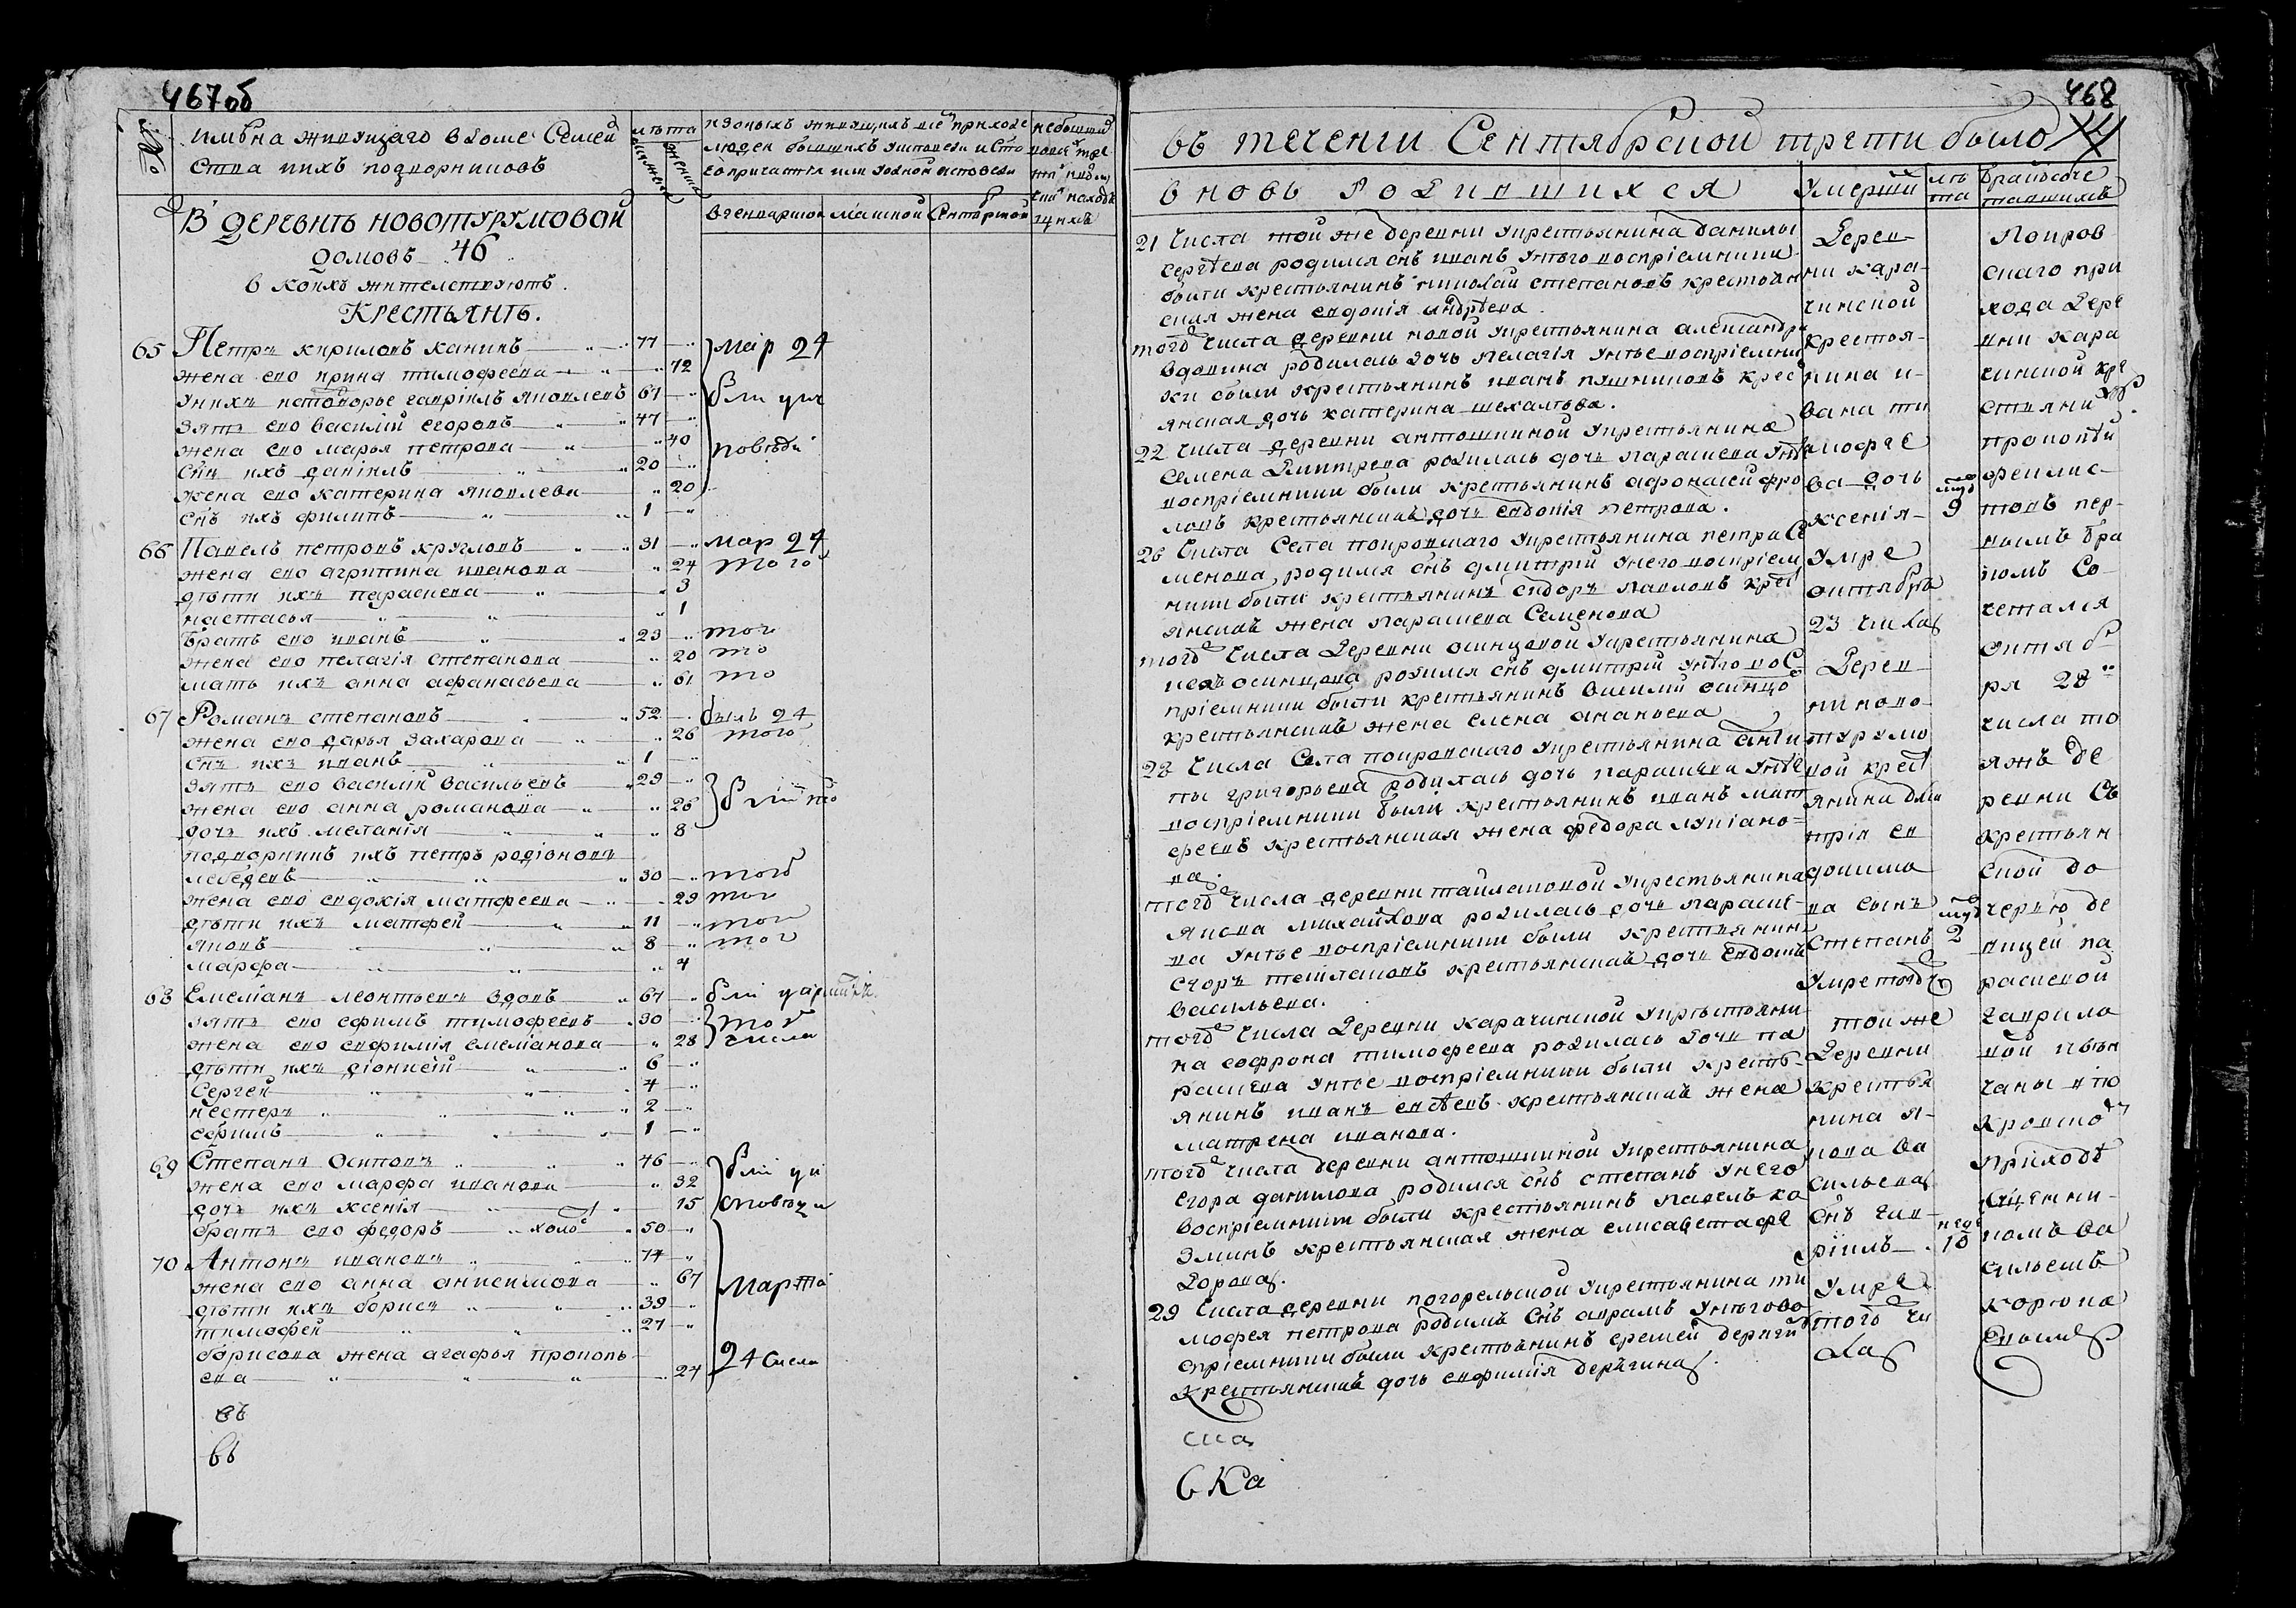 467об
№
имѣна живущаго вдоме Семей
ства ихъ подворниковъ
лѣта
мужеска
женска
людей бывшихъ уисповеди и Свто
го причастiя или уодной исповеди
вгенварской майской Сентабрской
небывшии
В деревнѣ новотурумовой
домовъ 46
в коихъ жителствуютъ.
Крестьянъ.
65 Петръ кириловъ канинъ 77 мар 24
жена ево ирина тимофеева 72
унихъ наподворье гаврiилъ яковлевъ 67 были уи
зять ево василiй егоровъ 47
жена ево марья петрова 40 поведи
снъ ихъ данiилъ 20
жена ево катерина яковлева 20
снъ ихъ филипъ 1
66 Павелъ петровъ кругловъ 31 мар 24
жена ево агрипина иванова 24 того
дѣти ихъ парасцева 3
настасья 1
братъ ево иванъ 23 того
жена ево пелагiя степанова 20 то
мать ихъ анна афанасьева 61 то
67 Романъ степановъ 52 былъ 24
жена ево дарья захарова 26 того
снъ ихъ иванъ 1
зять ево василiй васильевъ 29
жена ево анна романова 26
дочь ихъ меланiя 8
подворникъ ихъ петръ родiоновъ
лебедевъ 30 того
жена ево евдокiя матфеева 29 того
дѣти ихъ матфей 11 того
яковъ 8 того
марфа 4
68 Емелiанъ леонтьевъ вдовъ 67
зять ево ефимъ тимофеевъ 30 того
жена ево евфимiя емелiанова 28 числа
дѣти ихъ дiонисiй 6
Сергей 4
нестеръ 2
ефимъ 1
69 Степанъ Осиповъ 46 были уи
жена ево марфа иванова 32
дочь ихъ ксенiя 15 споведи
братъ ево федоръ холо 50
70 Антонъ ивановъ 74
жена ево анна анисимова 67 марта
дѣти ихъ борисъ 39
тимофей 27
борисова жена агафья прокопь
ева 24 24 Числа
въ
вь
468
въ теченiи Сентябрской трети было
вновь родившихся
умерши
лѣта
бракосоче
тавшихъ
21 Числа той же деревни укрестьянина данилы
сергѣева родился снъ иванъ унѣго воспрiемники
были крестьянинъ николай степановъ крестьян
ская жена евдокiя андрѣева.
того числа деревни новой укрестьянина александра
вдовина родилась дочь пелагiя унѣе воспрiемни
ки были крестьянинъ иванъ пушниковъ крес
янская дочь катерина шехалѣва.
22 Числа деревни антошкиной укрестьянина
Семена Дмитрева родилась дочь парасцева унѣе
воспрiемники были крестьянинъ афонасей фро
ловъ крестьянская дочь евдокiя петрова.
26 Числа Села покровскаго укрестьянина петра Се
менова родился снъ дмитрiй унего воспрiем
ники были крестьянинъ сидоръ павловъ крес
янская жена парасцева Семенова
того числа деревни осинцовой укрестьянина
осинцова родился снъ дмитрiй унѣго вос
прiемники были крестьянинъ василий осинцо
крестьянская жена елена ананьева
28 Числа Села покровскаго укрестьянина анти
пы григорьева родилась дочь парасцева унѣе
воспрiемники были крестьянинъ иванъ мат
феевъ крестьянская жена федора лукiано=
ва.
того числа деревни тайлаковой укрестьянина
якова михайлова родилась дочь парасце-
ва унѣе воспрiемники были крестьянинъ
егоръ тейлаковъ крестьянская дочь евдокiя
васильева.
того числа деревни карачинской укрестьяни
на софрона тимофеева родилась дочь па
расцева унѣе воспрiемники были кресть-
янинъ иванъ крестьянская жена
матрена иванова.
того числа деревни антошкиной укрестьянина
егора данилова родился снъ степанъ унего
воспрiемники были крестьянинъ павелъ ка
зминъ крестьянская жена елисавета фе
дорова.
29 Числа деревни погорельской укрестьянина ти
мофея петрова родился Снъ аврамъ унѣго во
спрiемники были крестьянинъ еремей деригин
крестьянская дочь евфимiя деригина.
ска
6 Ка
Дерев-
ни кара-
чинской
крестья-
нина и-
вана ти
мофее
ва дочь
ксенiя 9
умре
октября
23 числа
Дерев
ни ново
турумо
вой крест
янина дми
трiя ев
докимо
ва сынъ
степанъ 2
умре того ч
той же
деревни
крестья
нина я-
кова ва
сильева
снъ гав-
рiилъ 10
умре
того чи
сла
Покров
скаго при
хода дере
вни кара
чинской кре
стьянин
прокопiй
феилис-
товъ пер-
вымъ бра
комъ Со-
четался
октяб-
ря 28
числа то
яжъ де
ревни Съ
крестьян
ской до
черью де
вицей па
расцевой
гаврило
вой вѣн
чаны
покровско
приходѣ
священни-
комъ ва
сильемъ